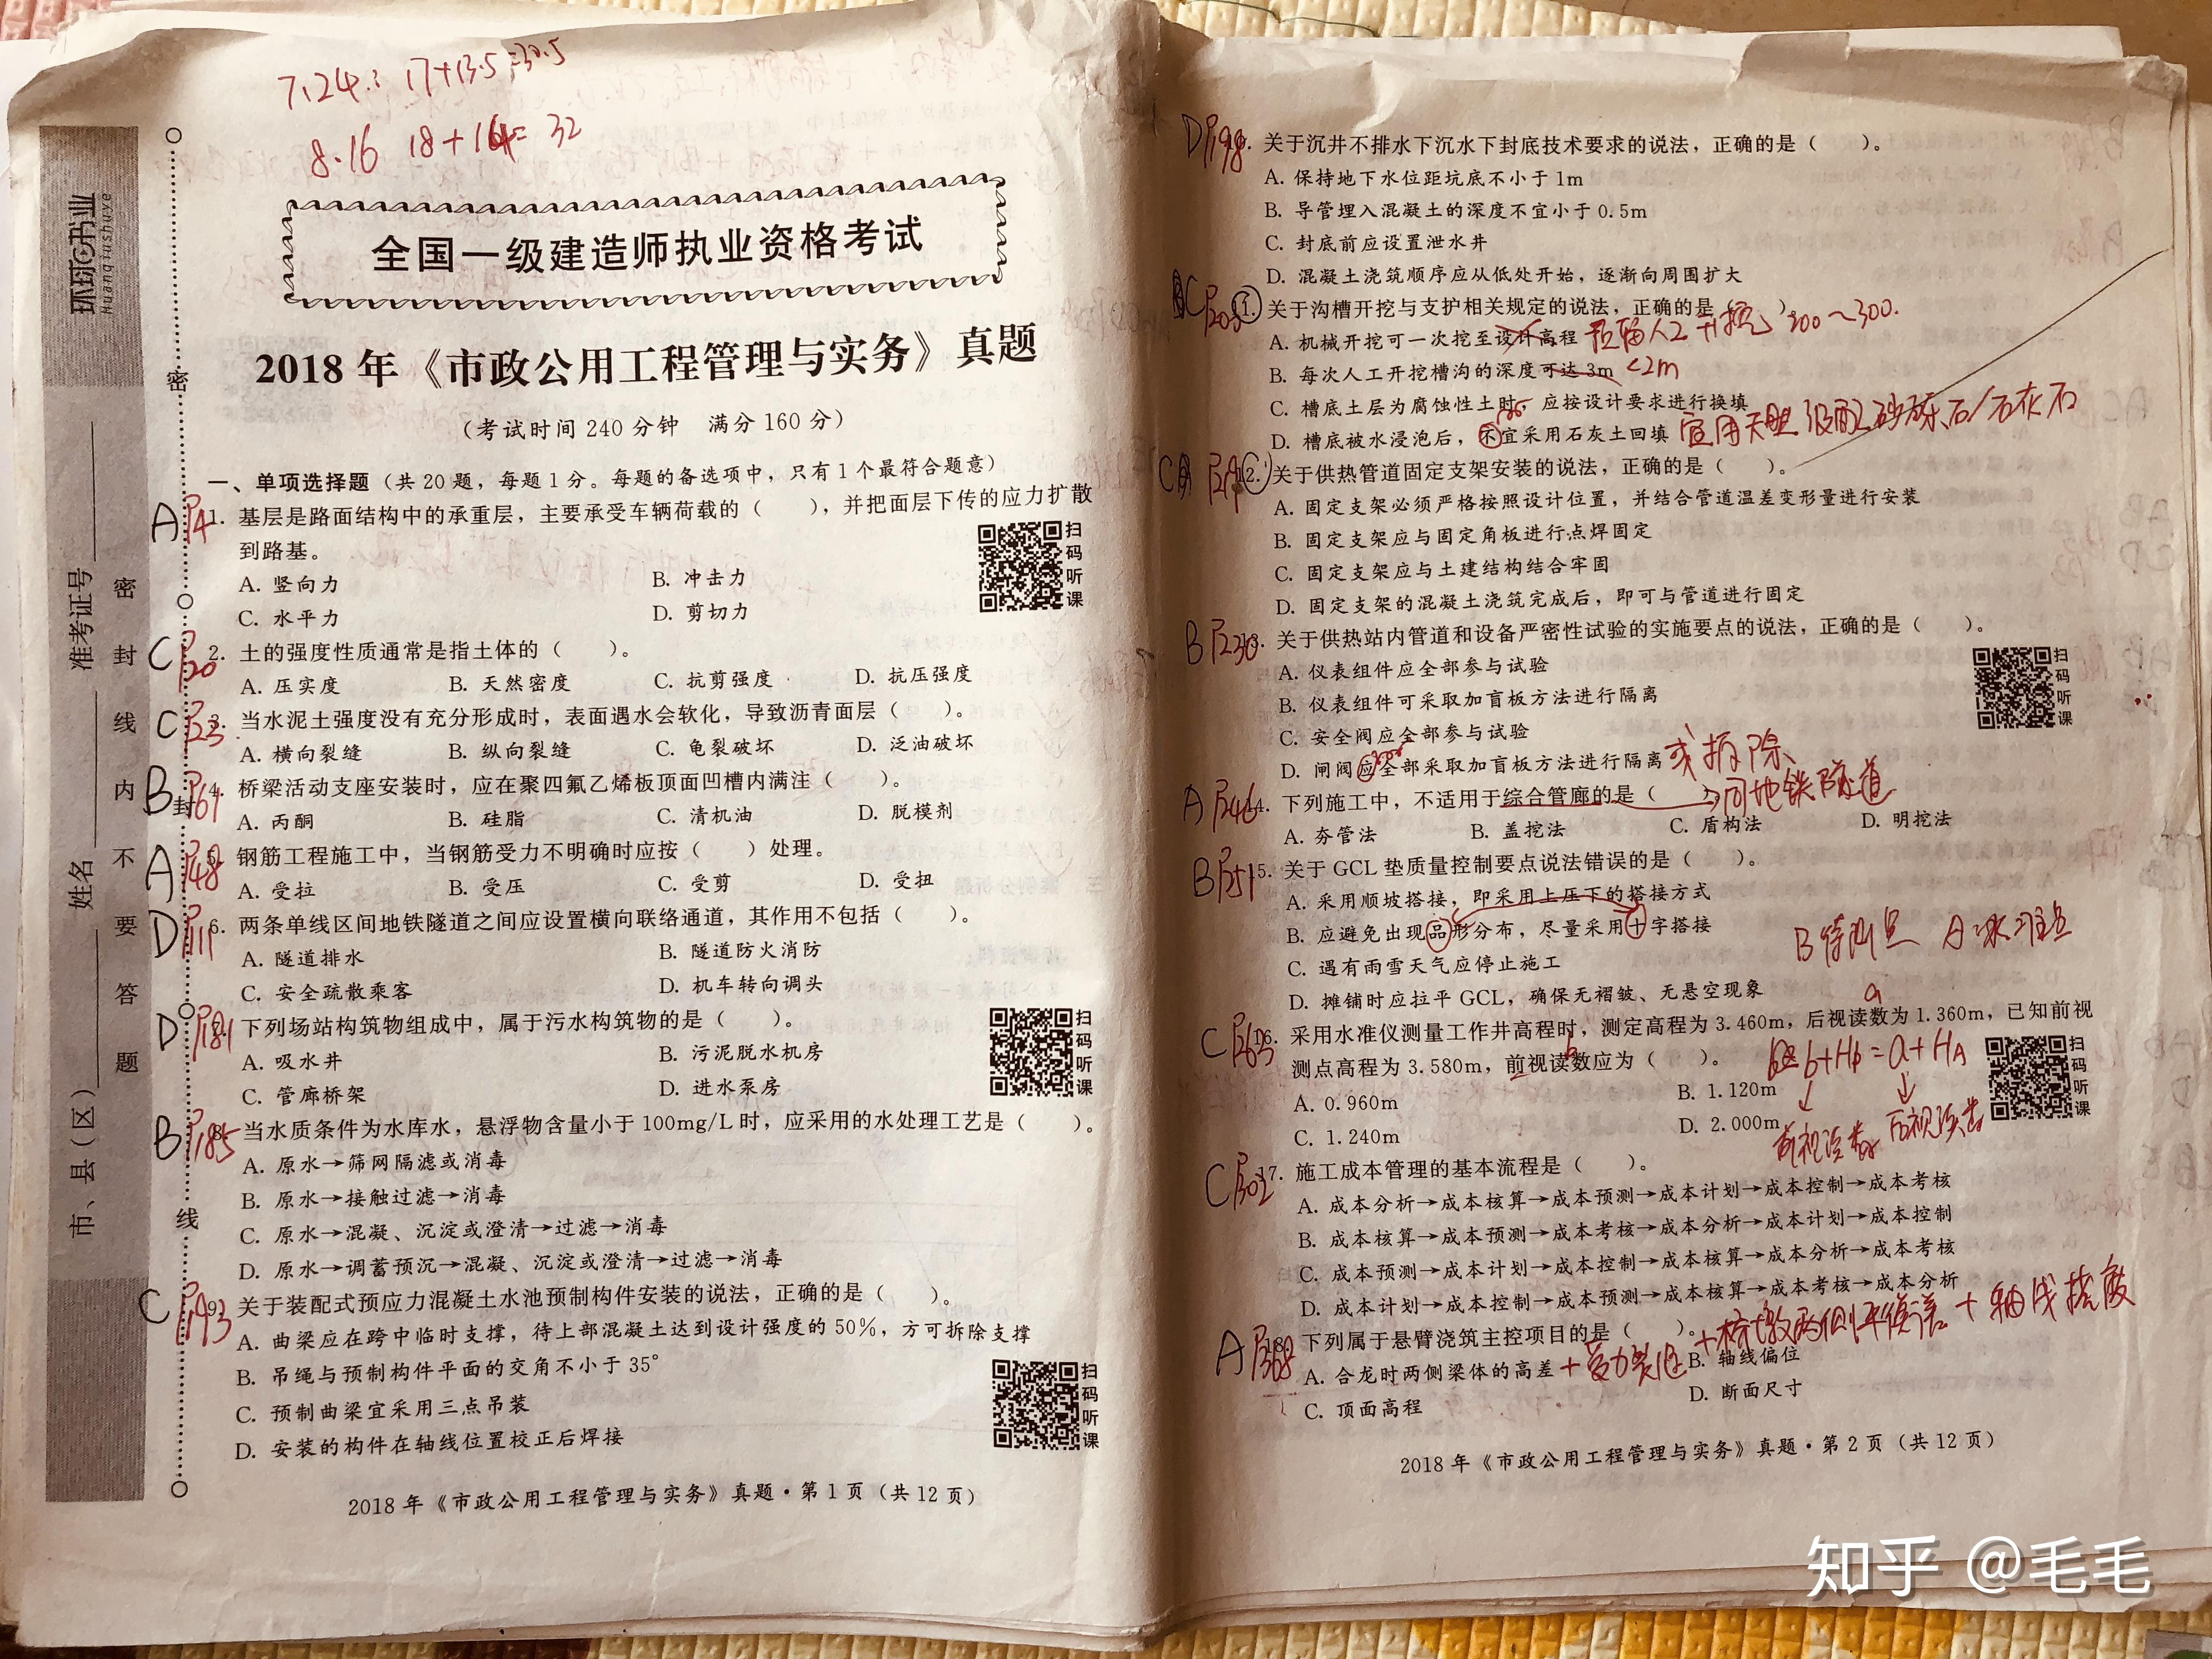 7.24: 17+13.5=30.5
8.16 18+14=32
环球书业
Huanqiushuye
市、县(区) 姓名 准考证号
密 封 线 内 不 要 答 题
密
封
线
全国一级建造师执业资格考试
2018 年《市政公用工程管理与实务》真题
(考试时间 240 分钟 满分 160 分)
一、单项选择题(共 20 题，每题 1 分。每题的备选项中，只有 1 个最符合题意)
A P4 1. 基层是路面结构中的承重层，主要承受车辆荷载的( )，并把面层下传的应力扩散
到路基。
A. 竖向力 B. 冲击力
C. 水平力 D. 剪切力
扫码听课
C P20 2. 土的强度性质通常是指土体的( )。
A. 压实度 B. 天然密度 C. 抗剪强度 D. 抗压强度
C P23 3. 当水泥土强度没有充分形成时，表面遇水会软化，导致沥青面层( )。
A. 横向裂缝 B. 纵向裂缝 C. 龟裂破坏 D. 泛油破坏
B P61 4. 桥梁活动支座安装时，应在聚四氟乙烯板顶面凹槽内满注( )。
A. 丙酮 B. 硅脂 C. 清机油 D. 脱模剂
A P48 5. 钢筋工程施工中，当钢筋受力不明确时应按( )处理。
A. 受拉 B. 受压 C. 受剪 D. 受扭
D P111 6. 两条单线区间地铁隧道之间应设置横向联络通道，其作用不包括( )。
A. 隧道排水 B. 隧道防火消防
C. 安全疏散乘客 D. 机车转向调头
D P181 7. 下列场站构筑物组成中，属于污水构筑物的是( )。
A. 吸水井 B. 污泥脱水机房
C. 管廊桥架 D. 进水泵房
扫码听课
B P185 8. 当水质条件为水库水，悬浮物含量小于 100mg/L 时，应采用的水处理工艺是( )。
A. 原水→筛网隔滤或消毒
B. 原水→接触过滤→消毒
C. 原水→混凝、沉淀或澄清→过滤→消毒
D. 原水→调蓄预沉→混凝、沉淀或澄清→过滤→消毒
C P193 9. 关于装配式预应力混凝土水池预制构件安装的说法，正确的是( )。
A. 曲梁应在跨中临时支撑，待上部混凝土达到设计强度的 50%，方可拆除支撑
B. 吊绳与预制构件平面的交角不小于 35°
C. 预制曲梁宜采用三点吊装
D. 安装的构件在轴线位置校正后焊接
扫码听课
2018 年《市政公用工程管理与实务》真题·第 1 页(共 12 页)
D P198 . 关于沉井不排水下沉水下封底技术要求的说法，正确的是( )。
A. 保持地下水位距坑底不小于 1m
B. 导管埋入混凝土的深度不宜小于 0.5m
C. 封底前应设置泄水井
D. 混凝土浇筑顺序应从低处开始，逐渐向周围扩大
C P203 11. 关于沟槽开挖与支护相关规定的说法，正确的是( )
A. 机械开挖可一次挖至设计高程 预留人工开挖 200～300.
B. 每次人工开挖槽沟的深度可达 3m <2m
C. 槽底土层为腐蚀性土时，应按设计要求进行换填
D. 槽底被水浸泡后，不宜采用石灰土回填 宜用天然级配砂砾石/石灰石
C 12. 关于供热管道固定支架安装的说法，正确的是( )。
A. 固定支架必须严格按照设计位置，并结合管道温差变形量进行安装
B. 固定支架应与固定角板进行点焊固定
C. 固定支架应与土建结构结合牢固
D. 固定支架的混凝土浇筑完成后，即可与管道进行固定
B P230 3. 关于供热站内管道和设备严密性试验的实施要点的说法，正确的是( )。
A. 仪表组件应全部参与试验
B. 仪表组件可采取加盲板方法进行隔离
C. 安全阀应全部参与试验
D. 闸阀应全部采取加盲板方法进行隔离 或拆除
扫码听课
A P246 14. 下列施工中，不适用于综合管廊的是( ) →同地铁隧道
A. 夯管法 B. 盖挖法 C. 盾构法 D. 明挖法
B P251 15. 关于 GCL 垫质量控制要点说法错误的是( )。
A. 采用顺坡搭接，即采用上压下的搭接方式
B. 应避免出现品形分布，尽量采用十字搭接
C. 遇有雨雪天气应停止施工
D. 摊铺时应拉平 GCL，确保无褶皱、无悬空现象
B 待测点 A 水准点
C P263 16. 采用水准仪测量工作井高程时，测定高程为 3.460m，后视读数为 1.360m，已知前视
测点高程为 3.580m，前视读数应为( )。
a
b
b+Hb=a+HA
前视读数 后视读数
A. 0.960m B. 1.120m
C. 1.240m D. 2.000m
扫码听课
C P302 17. 施工成本管理的基本流程是( )。
A. 成本分析→成本核算→成本预测→成本计划→成本控制→成本考核
B. 成本核算→成本预测→成本考核→成本分析→成本计划→成本控制
C. 成本预测→成本计划→成本控制→成本核算→成本分析→成本考核
D. 成本计划→成本控制→成本预测→成本核算→成本考核→成本分析
A P368 18. 下列属于悬臂浇筑主控项目的是( )。
A. 合龙时两侧梁体的高差 +受力裂缝 B. 轴线偏位
C. 顶面高程 D. 断面尺寸
2018 年《市政公用工程管理与实务》真题·第 2 页(共 12 页)
知乎 @毛毛